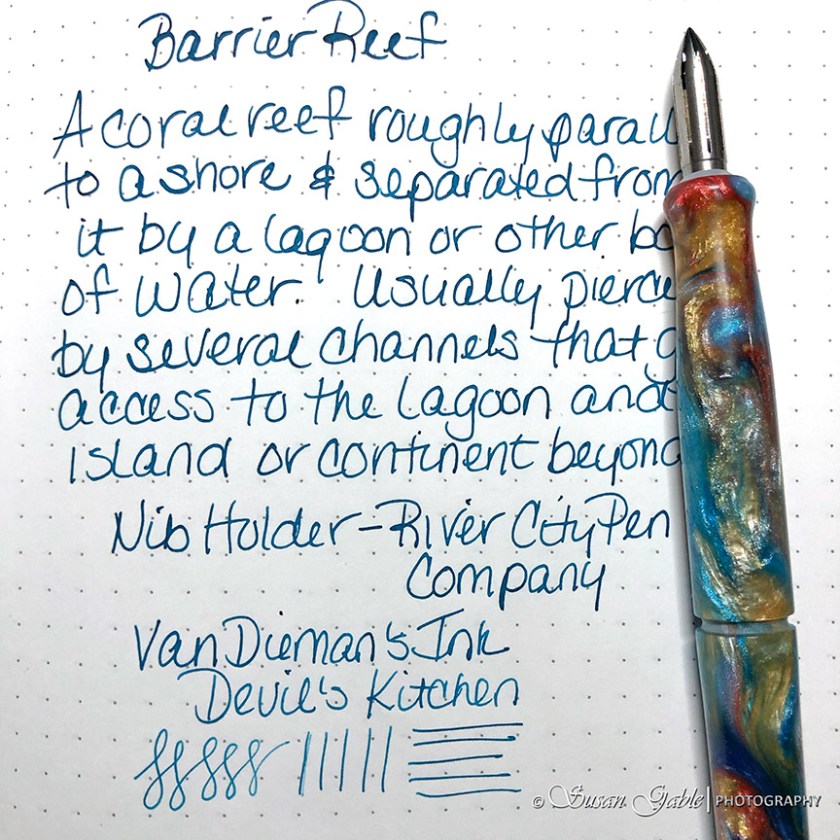 Barrier Reef
A coral reef roughly parall
to a shore & separated from
it by a lagoon or other bo
of water. Usually pierce
by several channels that g
access to the lagoon and
island or continent beyond
Nib Holder - River City Pen
Company
Van Dieman's Ink
Devil's Kitchen
© Susan Gable | PHOTOGRAPHY